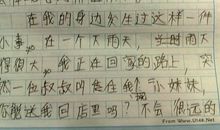 在我的身边发生过这样一件
小事。在一个大雨天,当时雨大
得很大。我正在回家的路上,突
然一位叔叔叫住在我,小妹妹,
你能送我回店里吗?不会很远的
From Www.Ut4k.Net